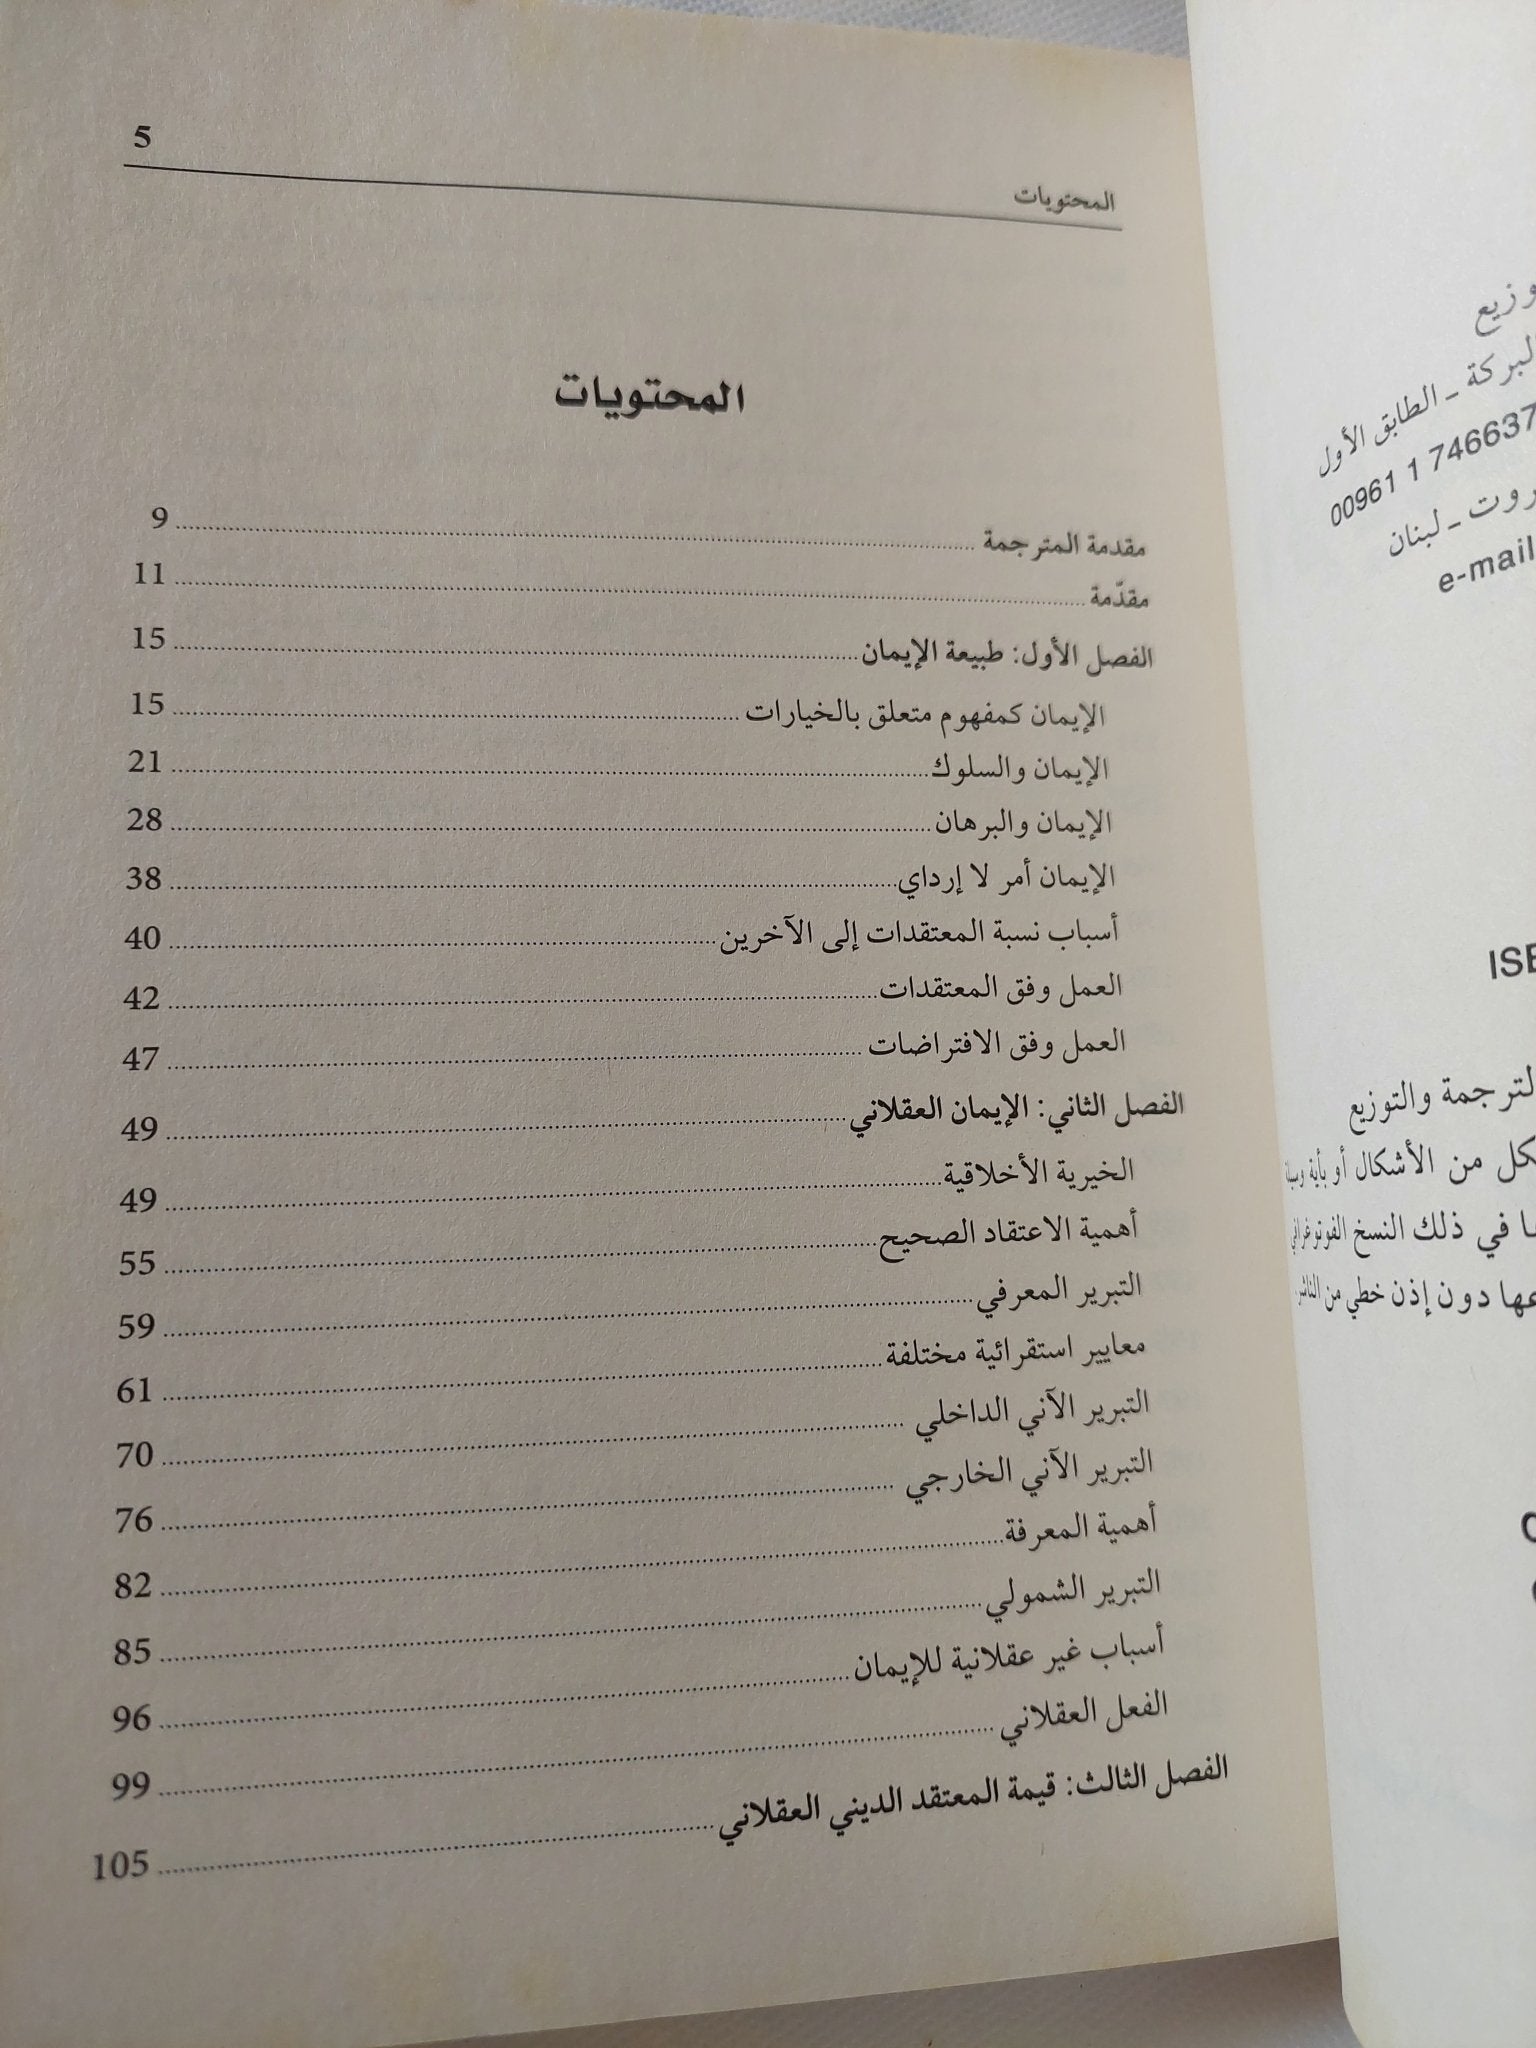 المحتويات 5
المحتويات
مقدمة المترجمة 9
مقدّمة 11
الفصل الأول: طبيعة الإيمان 15
الإيمان كمفهوم متعلق بالخيارات 15
الإيمان والسلوك 21
الإيمان والبرهان 28
الإيمان أمر لا إرداي 38
أسباب نسبة المعتقدات إلى الآخرين 40
العمل وفق المعتقدات 42
العمل وفق الافتراضات 47
الفصل الثاني: الإيمان العقلاني 49
الخيرية الأخلاقية 49
أهمية الاعتقاد الصحيح 55
التبرير المعرفي 59
معايير استقرائية مختلفة 61
التبرير الآني الداخلي 70
التبرير الآني الخارجي 76
أهمية المعرفة 82
التبرير الشمولي 85
أسباب غير عقلانية للإيمان 96
الفعل العقلاني 99
الفصل الثالث: قيمة المعتقد الديني العقلاني 105
وزيع
ـ الطابق الأول
00961 1 746637
ـ لبنان
e-mail
والتوزيع
من الأشكال أو بأية وسيلة
في ذلك النسخ الفوتوغرافي
دون إذن خطي من الناشر.